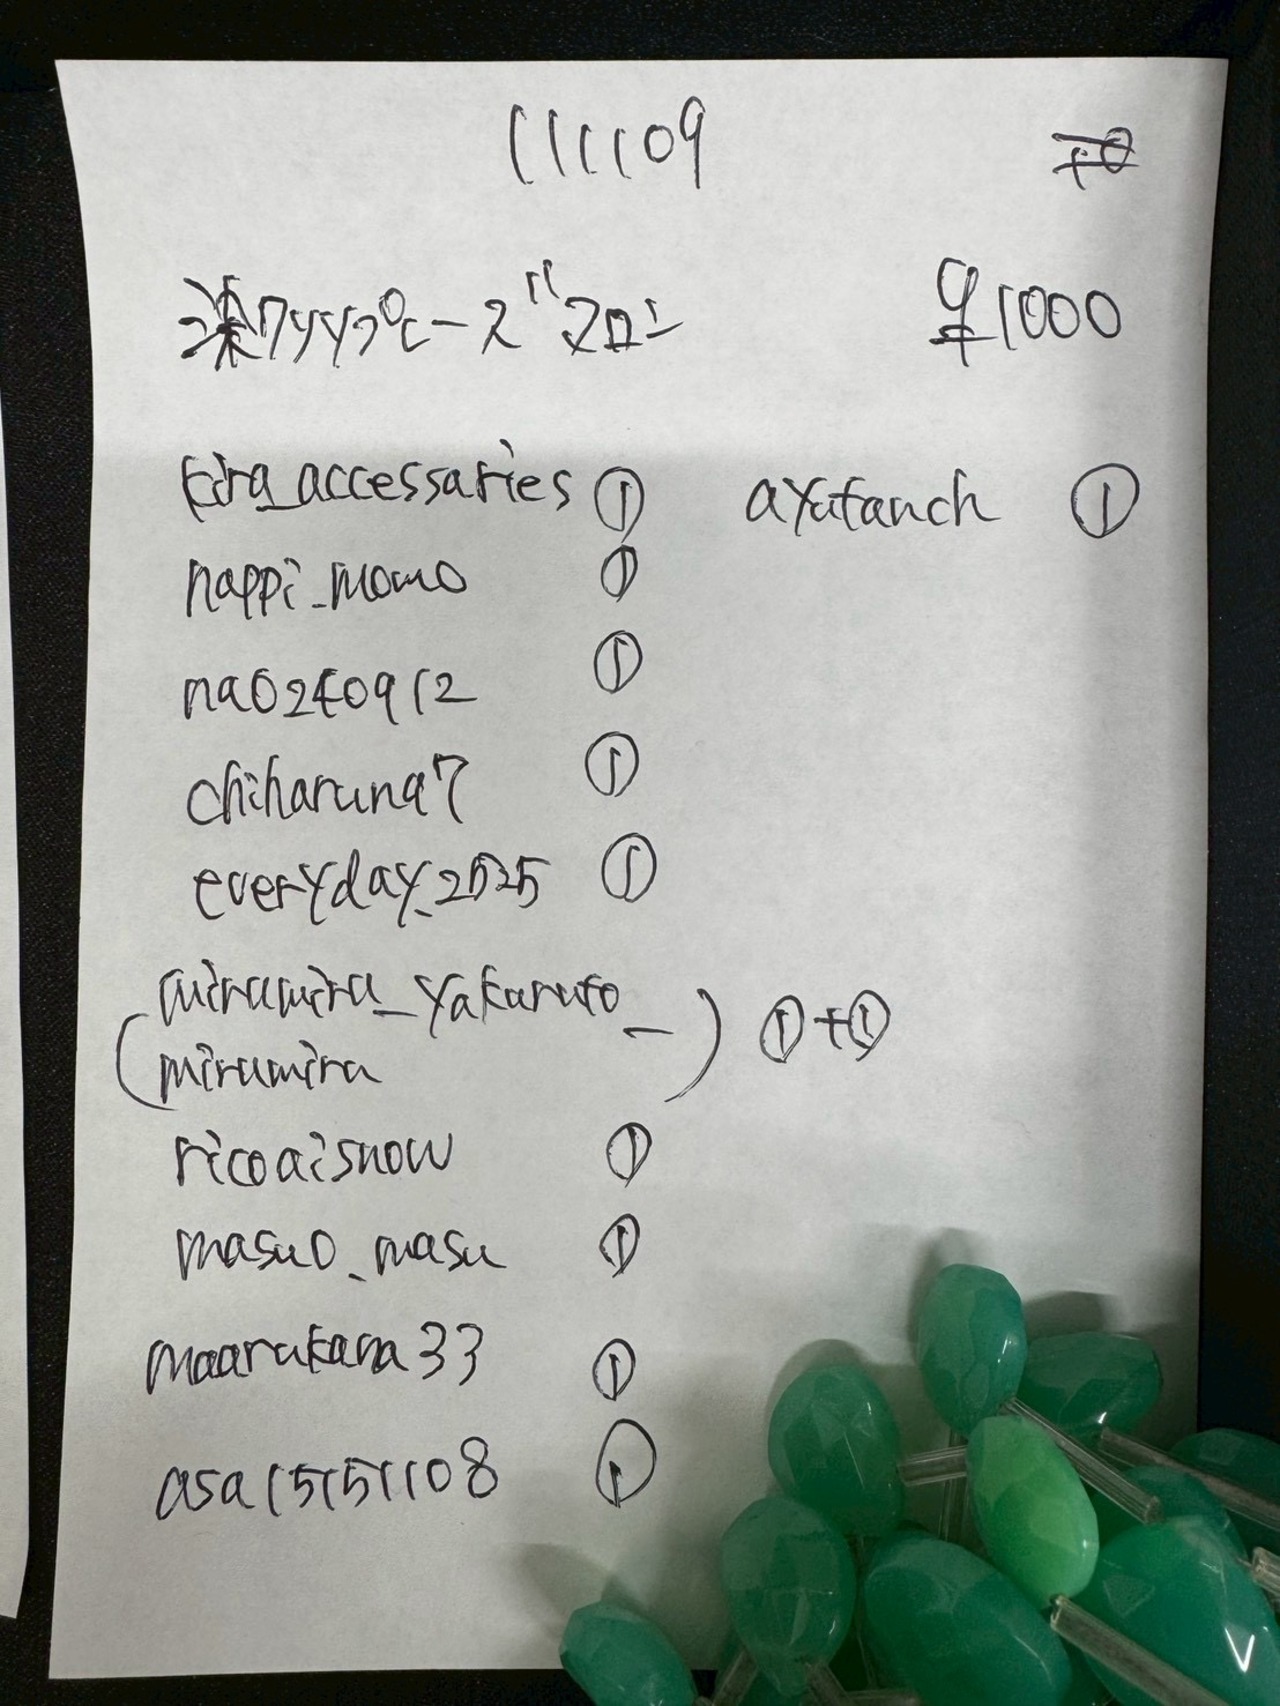 111109
深アップピースマロン ¥1000
kira_accessaries ① ayutanch ①
nappi_momo ①
na0240912 ①
chiharuna7 ①
everyday_2525 ①
(miramira_yakuruto_
miramira) ①+①
ricoaisnow ①
masuo_masu ①
maarukana33 ①
asa15151108 ①